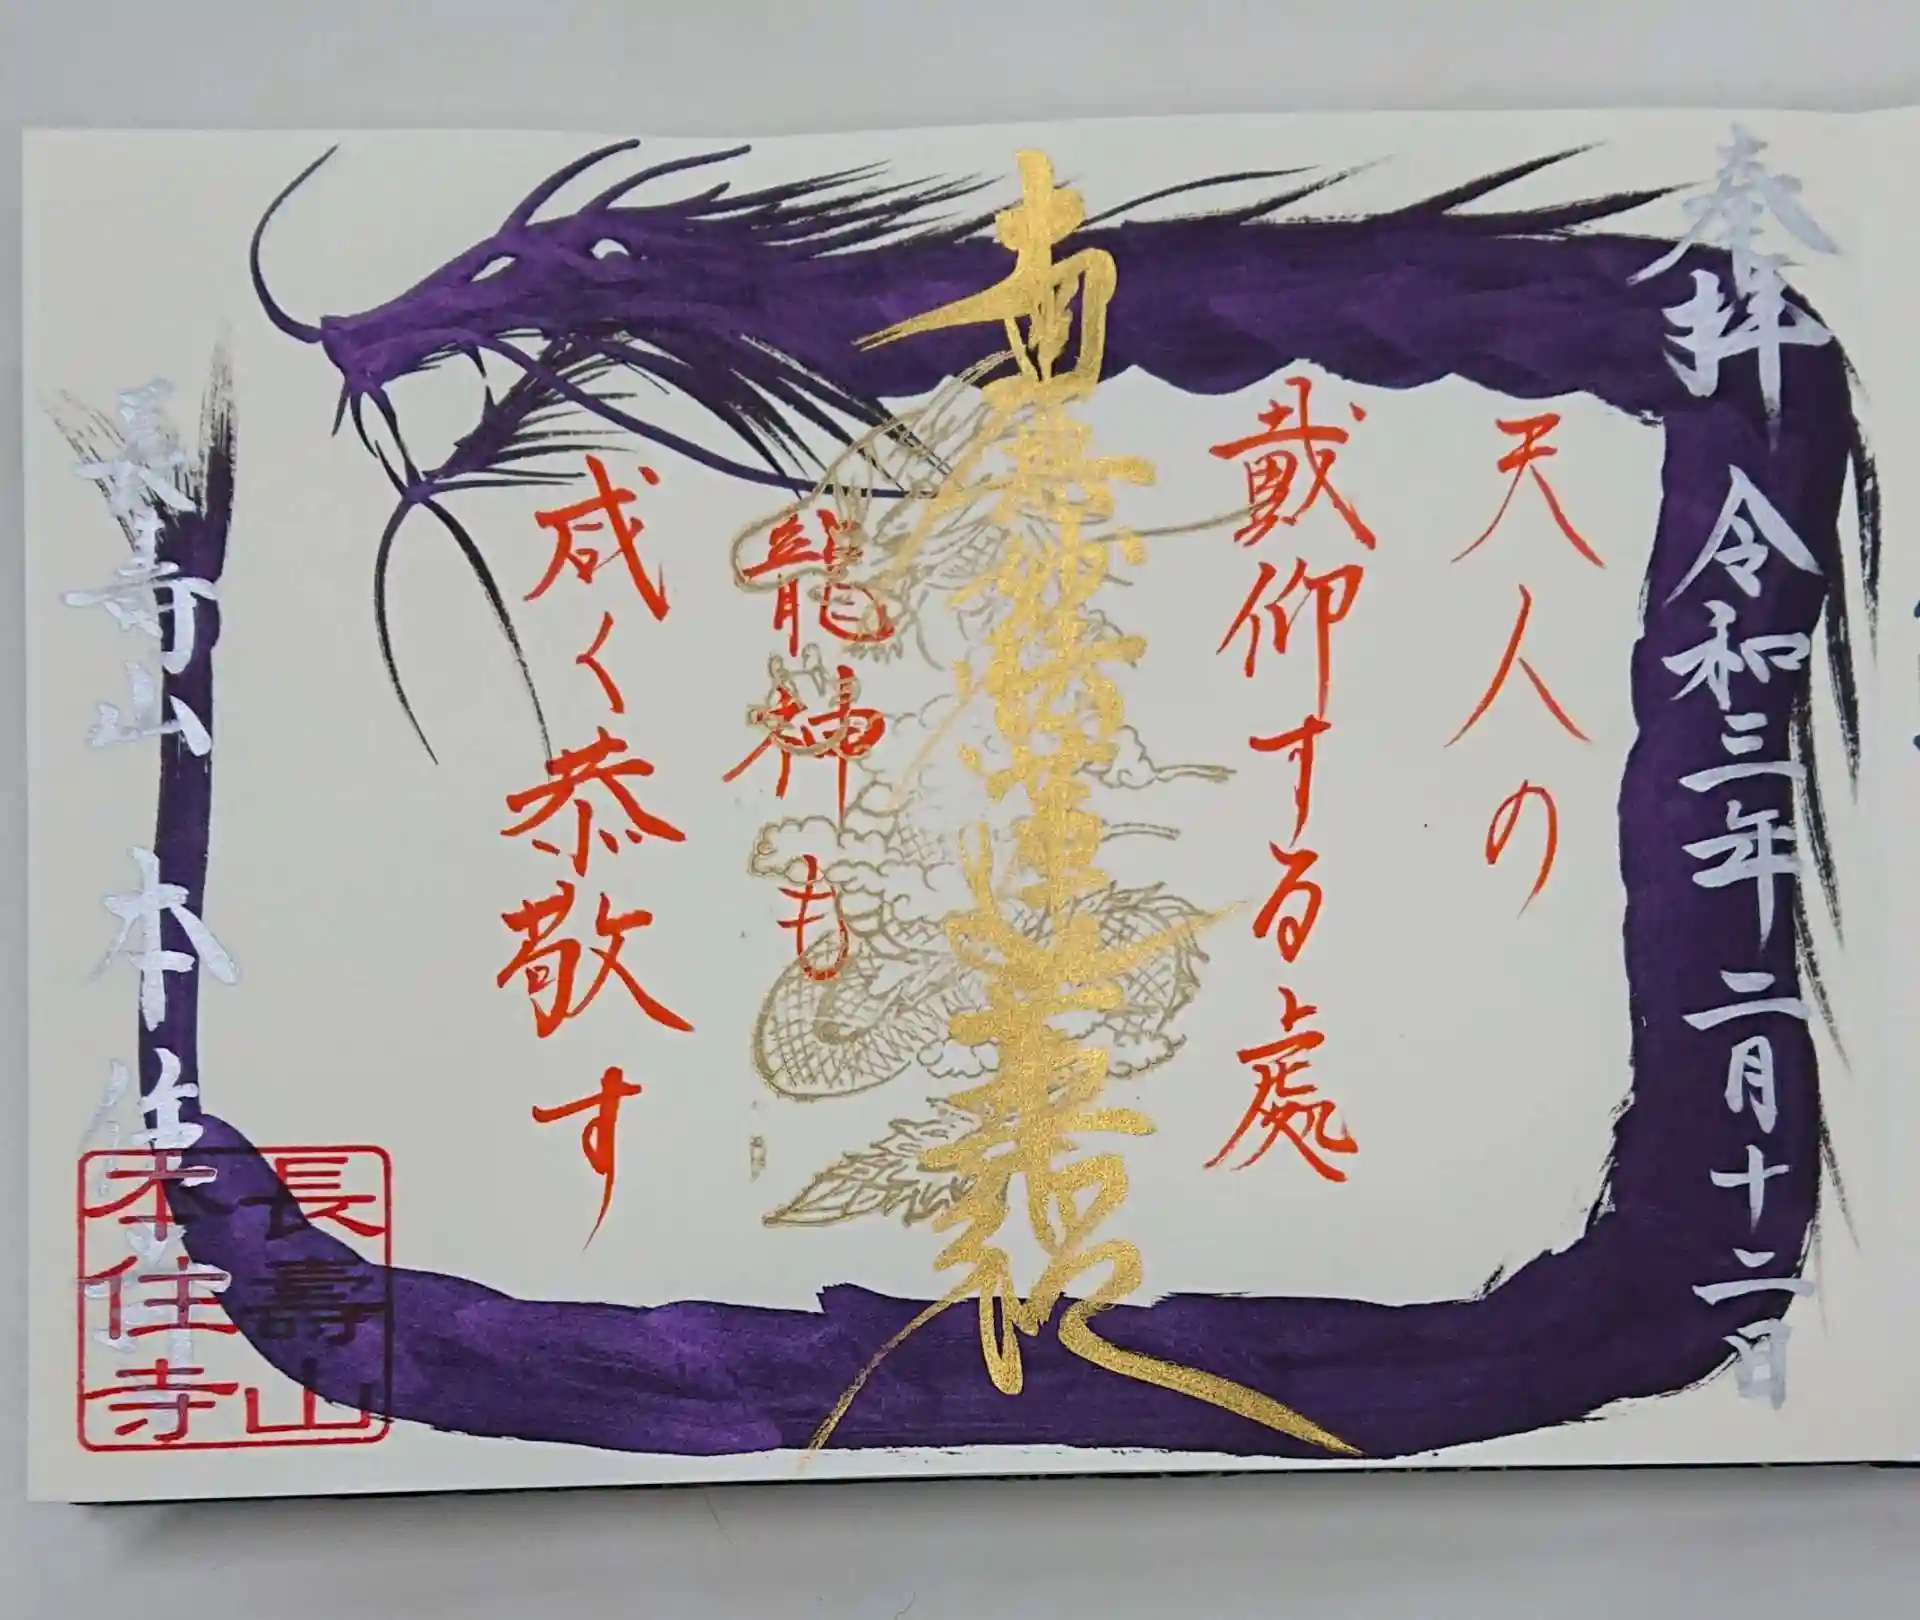 奉拝 令和三年二月十二日
天人の
戴仰する處
南無妙法蓮華経
龍神も
咸く恭敬す
長寿山 本住寺
長壽山
本住寺